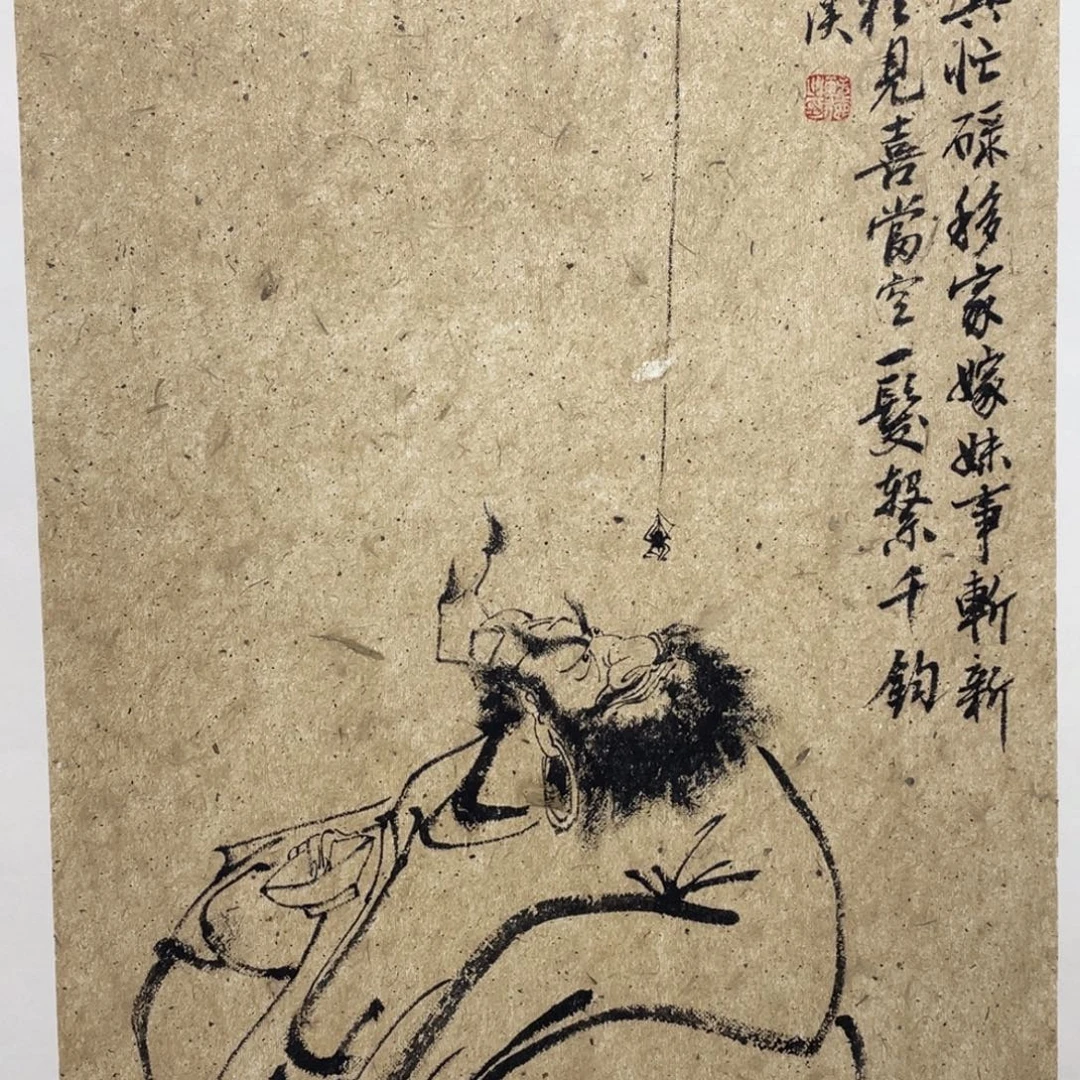 忙碌移家嫁妹事斬新
見喜當空一髮繫千鈞
漢